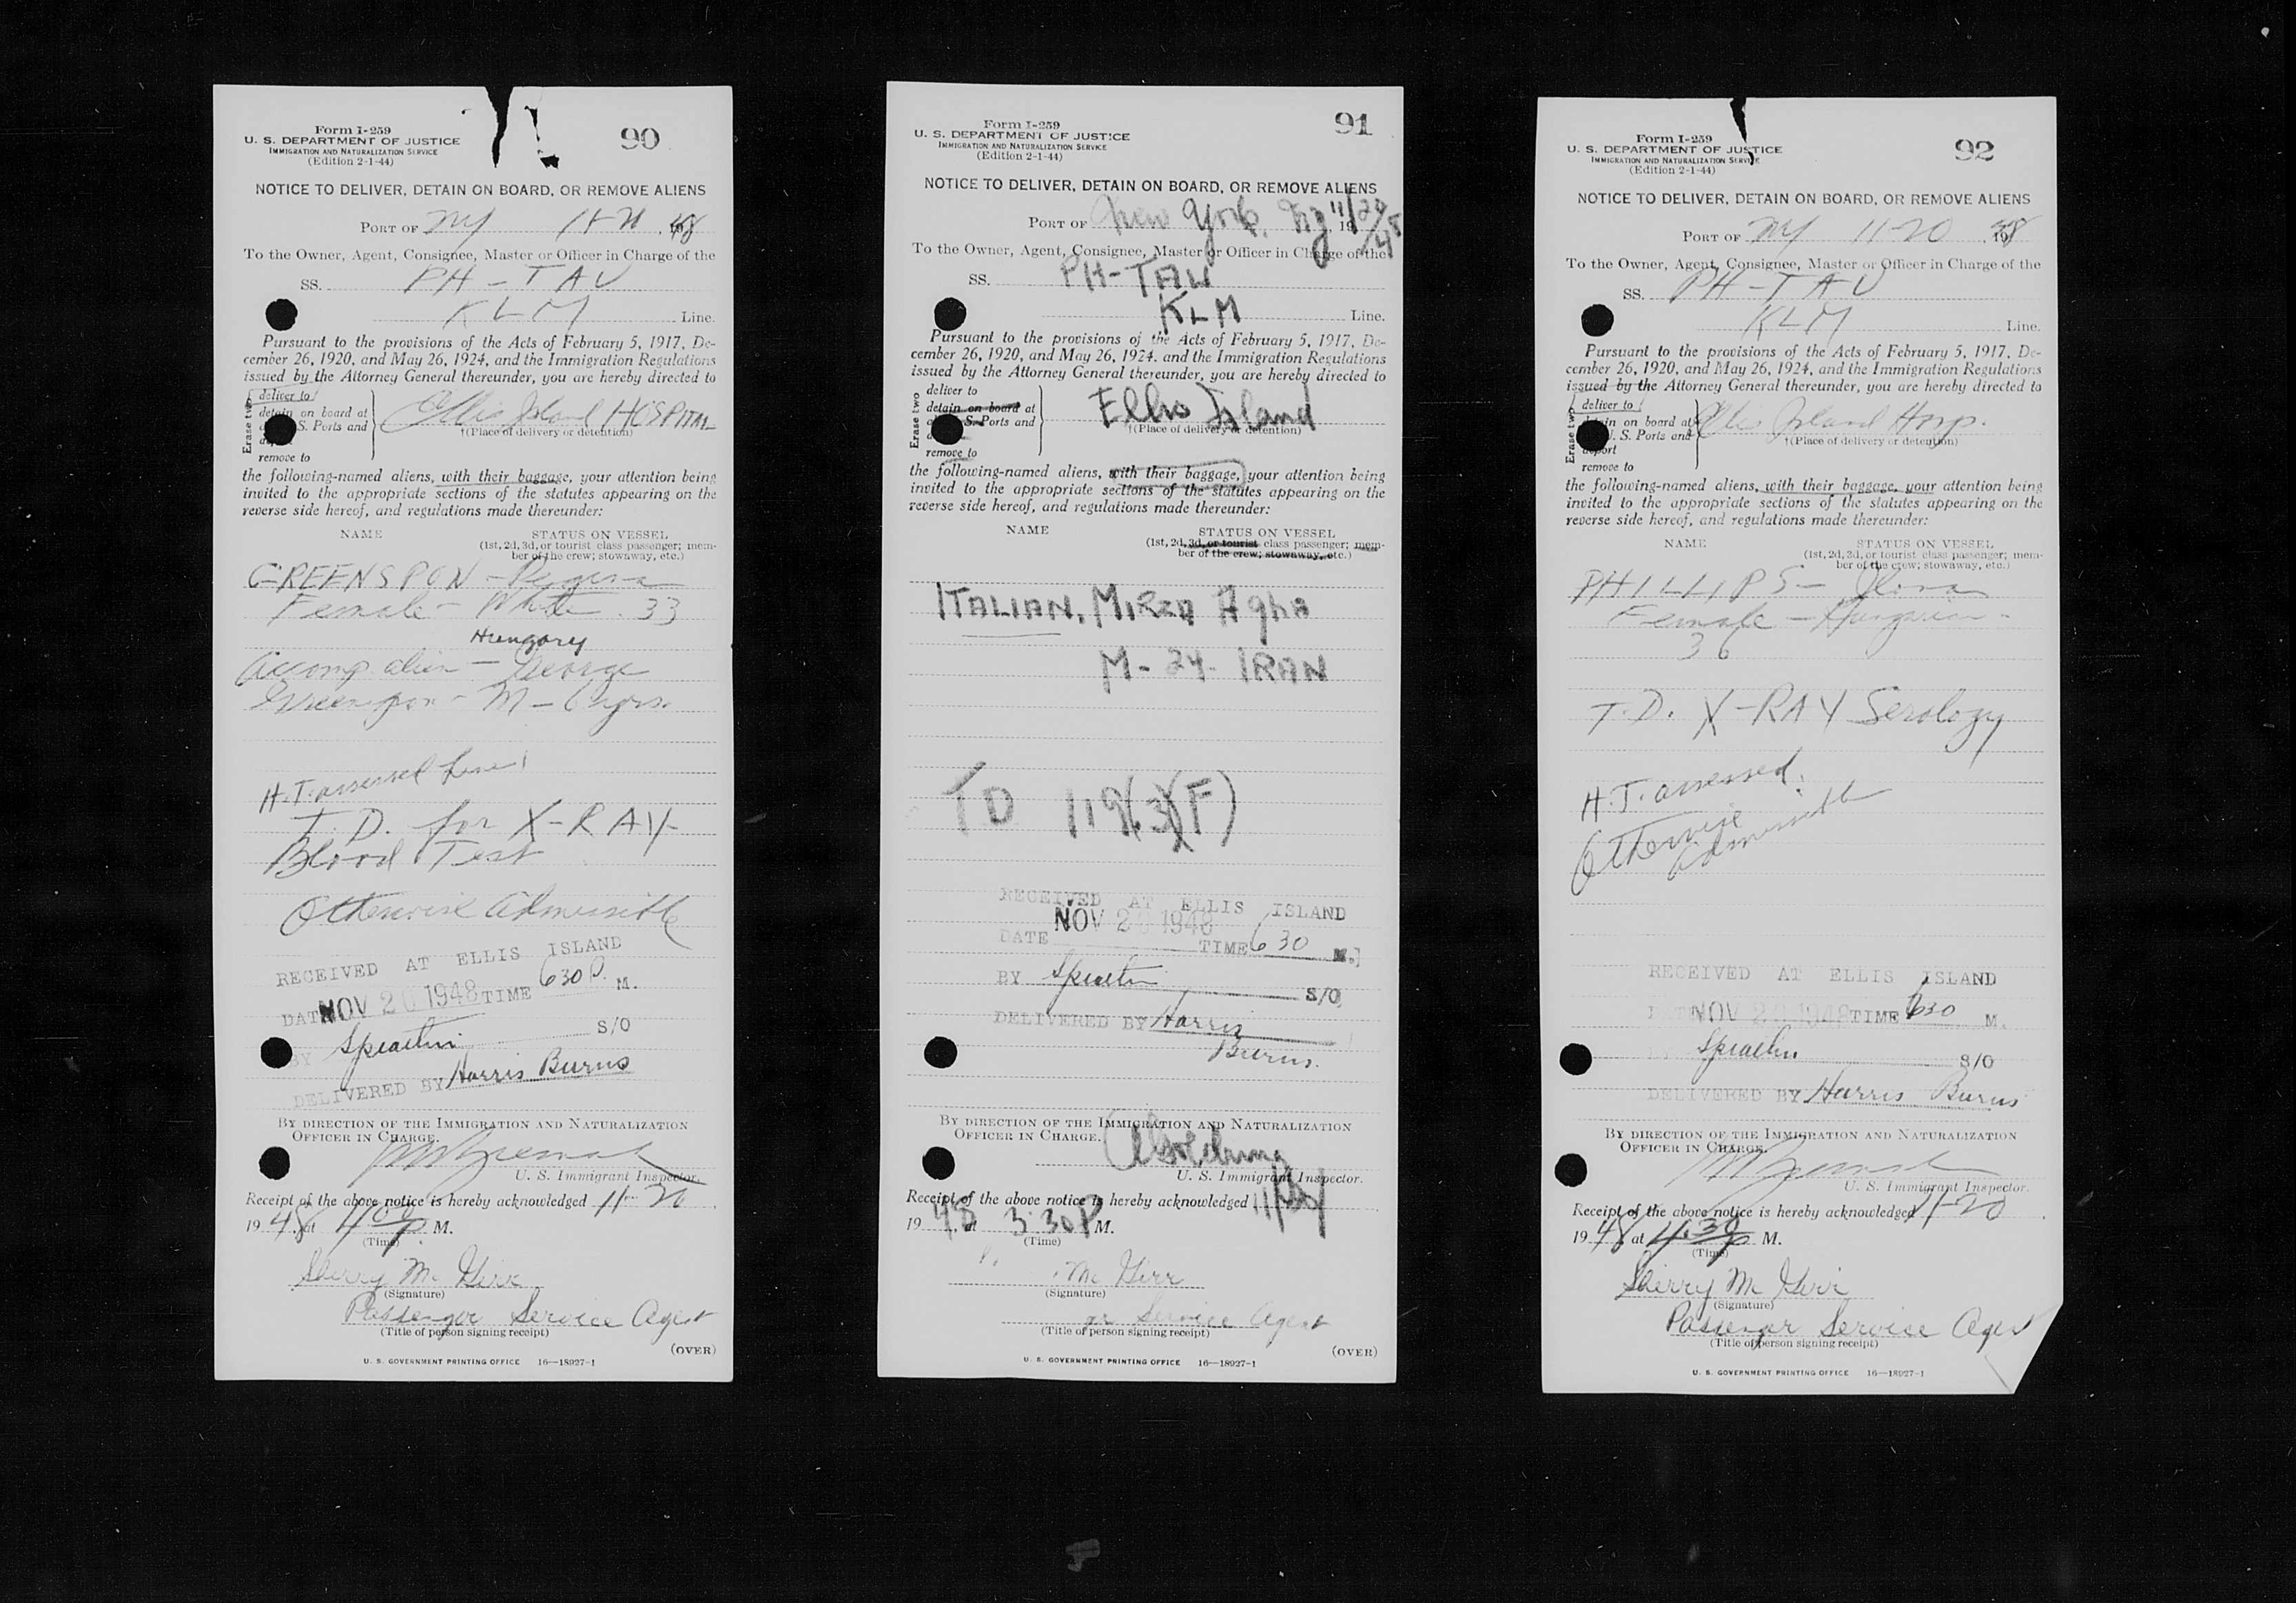 Form I-259
U. S. DEPARTMENT OF JUSTICE
IMMIGRATION AND NATURALIZATION SERVICE
(Edition 2-1-44)
90
NOTICE TO DELIVER, DETAIN ON BOARD, OR REMOVE ALIENS
PORT OF NY 11-20, 1948
To the Owner, Agent, Consignee, Master or Officer in Charge of the
SS. PH-TAV
KLM Line.
Pursuant to the provisions of the Acts of February 5, 1917, De-
cember 26, 1920, and May 26, 1924, and the Immigration Regulations
issued by the Attorney General thereunder, you are hereby directed to
Erase two
deliver to
detain on board at
S. Ports and
remove to
Ellis Island HOSPITAL
†(Place of delivery or detention)
the following-named aliens, with their baggage, your attention being
invited to the appropriate sections of the statutes appearing on the
reverse side hereof, and regulations made thereunder:
NAME STATUS ON VESSEL
(1st, 2d, 3d, or tourist class passenger; mem-
ber of the crew; stowaway, etc.)
GREENSPON - Regina
Female - White . 33
Hungary
Accomp alien - George
Greenspon - M - 6 yrs.
H.T. assessed
T. D. for X-RAY-
Blood Test
Otherwise Admissible
RECEIVED AT ELLIS ISLAND
DATE NOV 20 1948 TIME 630 P. M.
BY S/O
DELIVERED BY Harris Burns
BY DIRECTION OF THE IMMIGRATION AND NATURALIZATION
OFFICER IN CHARGE.
U. S. Immigrant Inspector.
Receipt of the above notice is hereby acknowledged 11-20
1948, at 400 P M.
(Time)
Sherry Mc Girr
(Signature)
Passenger Service Agent
(Title of person signing receipt)
(OVER)
U. S. GOVERNMENT PRINTING OFFICE 16—18927-1
Form I-259
U. S. DEPARTMENT OF JUSTICE
IMMIGRATION AND NATURALIZATION SERVICE
(Edition 2-1-44)
91
NOTICE TO DELIVER, DETAIN ON BOARD, OR REMOVE ALIENS
PORT OF New York, NY 11/20/48 19
To the Owner, Agent, Consignee, Master or Officer in Charge of the
SS. PH-TAV
KLM Line.
Pursuant to the provisions of the Acts of February 5, 1917, De-
cember 26, 1920, and May 26, 1924, and the Immigration Regulations
issued by the Attorney General thereunder, you are hereby directed to
Erase two
deliver to
detain on board at
S. Ports and
remove to
Ellis Island
†(Place of delivery or detention)
the following-named aliens, with their baggage, your attention being
invited to the appropriate sections of the statutes appearing on the
reverse side hereof, and regulations made thereunder:
NAME STATUS ON VESSEL
(1st, 2d, 3d, or tourist class passenger; mem-
ber of the crew; stowaway, etc.)
ITALIAN, MIRZA Agha
M-24-IRAN
TD 119(3)(F)
RECEIVED AT ELLIS ISLAND
DATE NOV 20 1948 TIME 6 30 M.
BY S/O
DELIVERED BY Harris
Burns.
BY DIRECTION OF THE IMMIGRATION AND NATURALIZATION
OFFICER IN CHARGE.
U. S. Immigrant Inspector.
Receipt of the above notice is hereby acknowledged 11/20/
1948, at 3:30 P M.
(Time)
Mc Girr
(Signature)
er Service Agent
(Title of person signing receipt)
(OVER)
U. S. GOVERNMENT PRINTING OFFICE 16—18927-1
Form I-259
U. S. DEPARTMENT OF JUSTICE
IMMIGRATION AND NATURALIZATION SERVICE
(Edition 2-1-44)
92
NOTICE TO DELIVER, DETAIN ON BOARD, OR REMOVE ALIENS
PORT OF NY 11-20, 1948
To the Owner, Agent, Consignee, Master or Officer in Charge of the
SS. PH-TAV
KLM Line.
Pursuant to the provisions of the Acts of February 5, 1917, De-
cember 26, 1920, and May 26, 1924, and the Immigration Regulations
issued by the Attorney General thereunder, you are hereby directed to
Erase two
deliver to
on board at
U. S. Ports and
deport
remove to
Ellis Island Hosp.
†(Place of delivery or detention)
the following-named aliens, with their baggage, your attention being
invited to the appropriate sections of the statutes appearing on the
reverse side hereof, and regulations made thereunder:
NAME STATUS ON VESSEL
(1st, 2d, 3d, or tourist class passenger; mem-
ber of the crew; stowaway, etc.)
PHILLIPS - Ilona
Female - Hungarian -
36
T.D. X-RAY Serology
H.T. assessed.
Otherwise
Admissible
RECEIVED AT ELLIS ISLAND
DATE NOV 20 1948 TIME 630 M.
BY S/O
DELIVERED BY Harris Burns
BY DIRECTION OF THE IMMIGRATION AND NATURALIZATION
OFFICER IN CHARGE.
U. S. Immigrant Inspector.
Receipt of the above notice is hereby acknowledged 11-20
1948 at 4:30 P M.
(Time)
Sherry Mc Girr
(Signature)
Passenger Service Agent
(Title of person signing receipt)
U. S. GOVERNMENT PRINTING OFFICE 16—18927-1